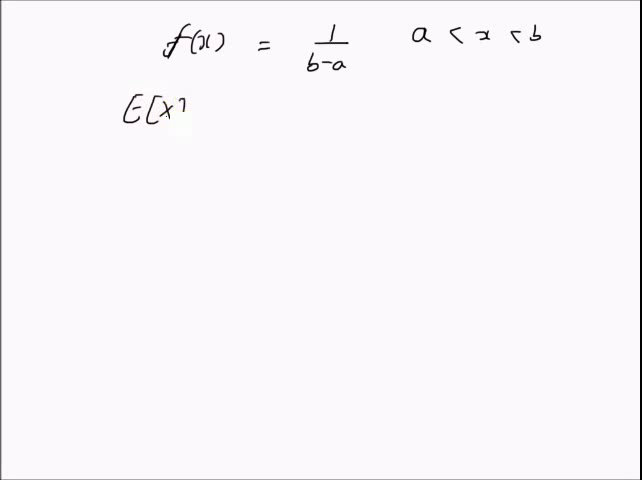 f(x) = 1/(b-a) a < x < b
E[X]